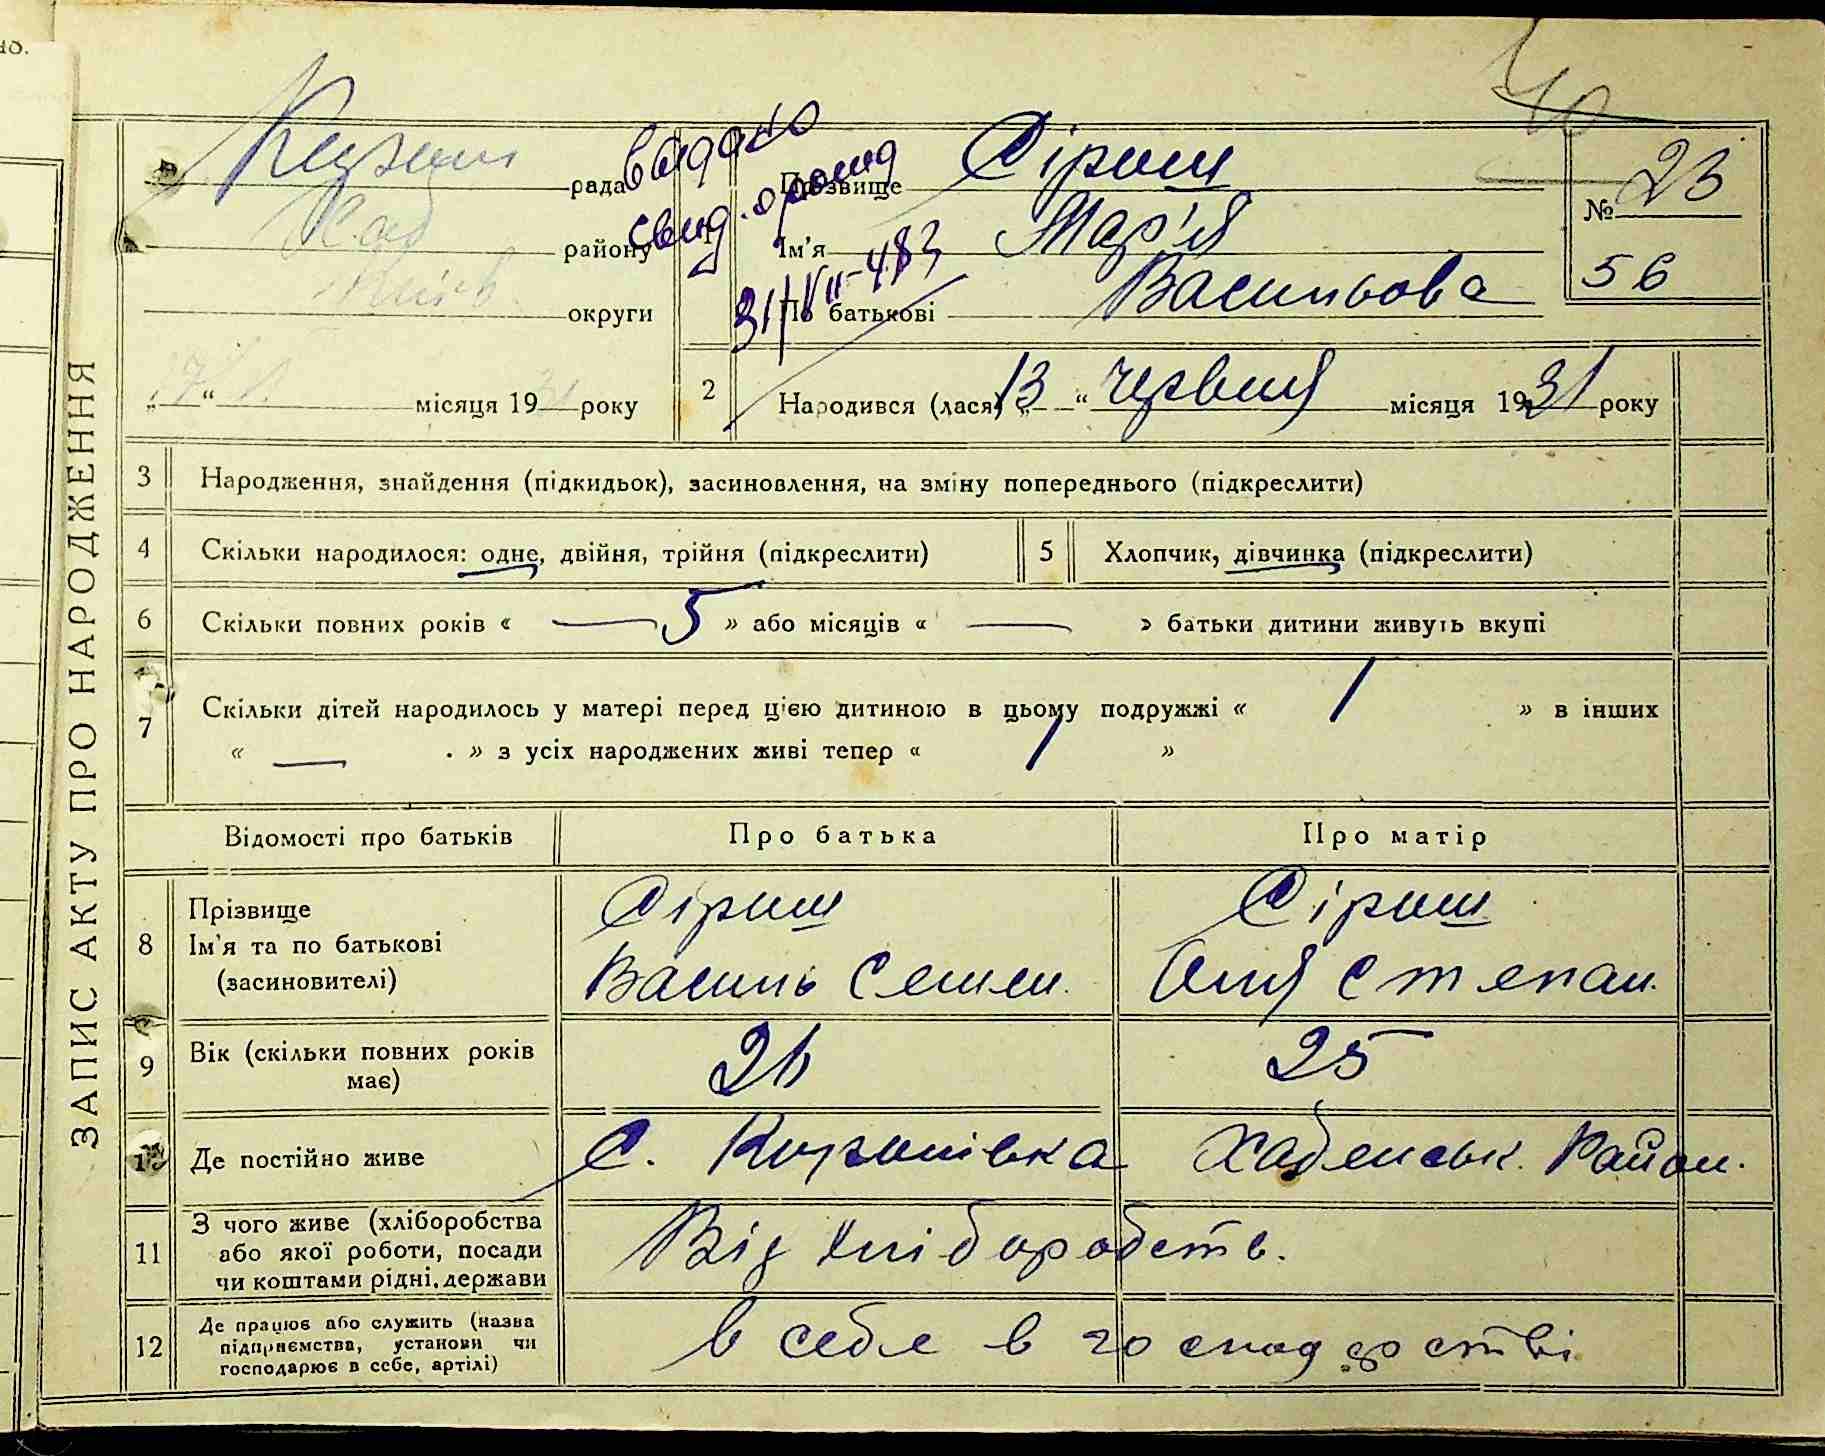 40
ЗАПИС АКТУ ПРО НАРОДЖЕННЯ
рада
району
Київ
округи
„ 17 “ місяця 19 31 року
видано
свид. о рожд
31/VII-48
1
Прізвище Сірош
Ім'я Мар'я
По батькові Васильова
№ 23
56
2 Народився (лася) „ 13 “ червня місяця 1931 року
3 Народження, знайдення (підкидьок), засиновлення, на зміну попереднього (підкреслити)
4 Скільки народилося: одне, двійня, трійня (підкреслити)
5 Хлопчик, дівчинка (підкреслити)
6 Скільки повних років « — 5 » або місяців « — » батьки дитини живуть вкупі
7 Скільки дітей народилось у матері перед цією дитиною в цьому подружжі « 1 » в інших
« — . » з усіх народжених живі тепер « 1 »
Відомості про батьків Про батька Про матір
8 Прізвище
Ім'я та по батькові
(засиновителі)
Сірош
Василь Семен.
Сірош
Оля Степан.
9 Вік (скільки повних років
має)
26
25
Де постійно живе
С. Хабенськ. Район.
11 З чого живе (хліборобства
або якої роботи, посади
чи коштами рідні, держави
Від хліборобств.
12 Де працює або служить (назва
підприємства, установи чи
господарює в себе, артілі)
в себе в господарстві